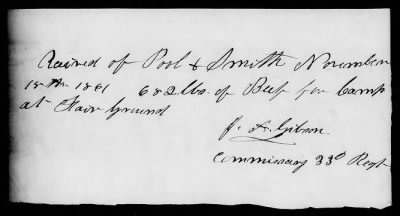 Recived of Pool & Smith November
15th 1861 682 lbs. of Beef for Camp
at Fair Ground
J. A. Gibson
Commissary 33d Regt